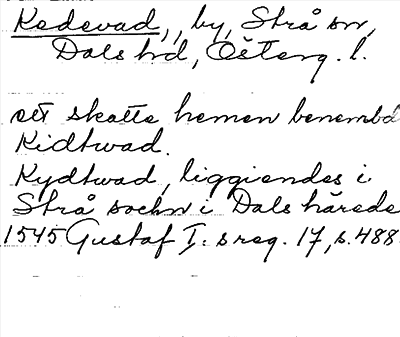 Kedevad, by, Strå sn,
Dals hd, Österg. l.
ett skatte hemen benembd
Kidhvad.
Kydhvad, liggiendes i
Strå sochn i Dals härede
1545 Gustaf I: s reg. 17, s. 488